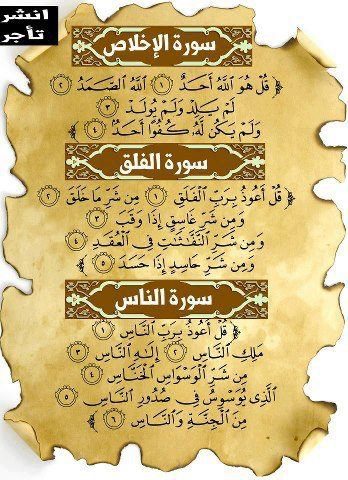 انشر
تأجر
سورة الإخلاص
قُلْ هُوَ اللَّهُ أَحَدٌ ١ اللَّهُ الصَّمَدُ ٢
لَمْ يَلِدْ وَلَمْ يُولَدْ ٣
وَلَمْ يَكُن لَّهُ كُفُوًا أَحَدٌ ٤
سورة الفلق
قُلْ أَعُوذُ بِرَبِّ الْفَلَقِ ١ مِن شَرِّ مَا خَلَقَ ٢
وَمِن شَرِّ غَاسِقٍ إِذَا وَقَبَ ٣
وَمِن شَرِّ النَّفَّاثَاتِ فِي الْعُقَدِ ٤
وَمِن شَرِّ حَاسِدٍ إِذَا حَسَدَ ٥
سورة الناس
قُلْ أَعُوذُ بِرَبِّ النَّاسِ ١
مَلِكِ النَّاسِ ٢ إِلَٰهِ النَّاسِ ٣
مِن شَرِّ الْوَسْوَاسِ الْخَنَّاسِ ٤
الَّذِي يُوَسْوِسُ فِي صُدُورِ النَّاسِ ٥
مِنَ الْجِنَّةِ وَالنَّاسِ ٦